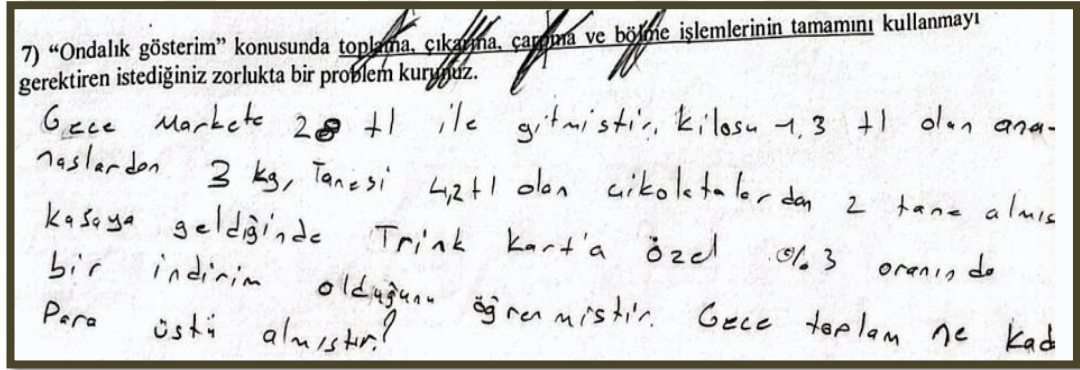 7) “Ondalık gösterim” konusunda toplama, çıkarma, çarpma ve bölme işlemlerinin tamamını kullanmayı
gerektiren istediğiniz zorlukta bir problem kurunuz.
Gece Markete 28 tl ile gitmiştir, kilosu 1,3 tl olan ana-
naslardan 3 kg, Tanesi 4,2 tl olan çikolatalardan 2 tane almış
kasaya geldiğinde Trink kart'a özel %3 oranında
bir indirim olduğunu öğrenmiştir. Gece toplam ne kad
Para üstü almıştır?